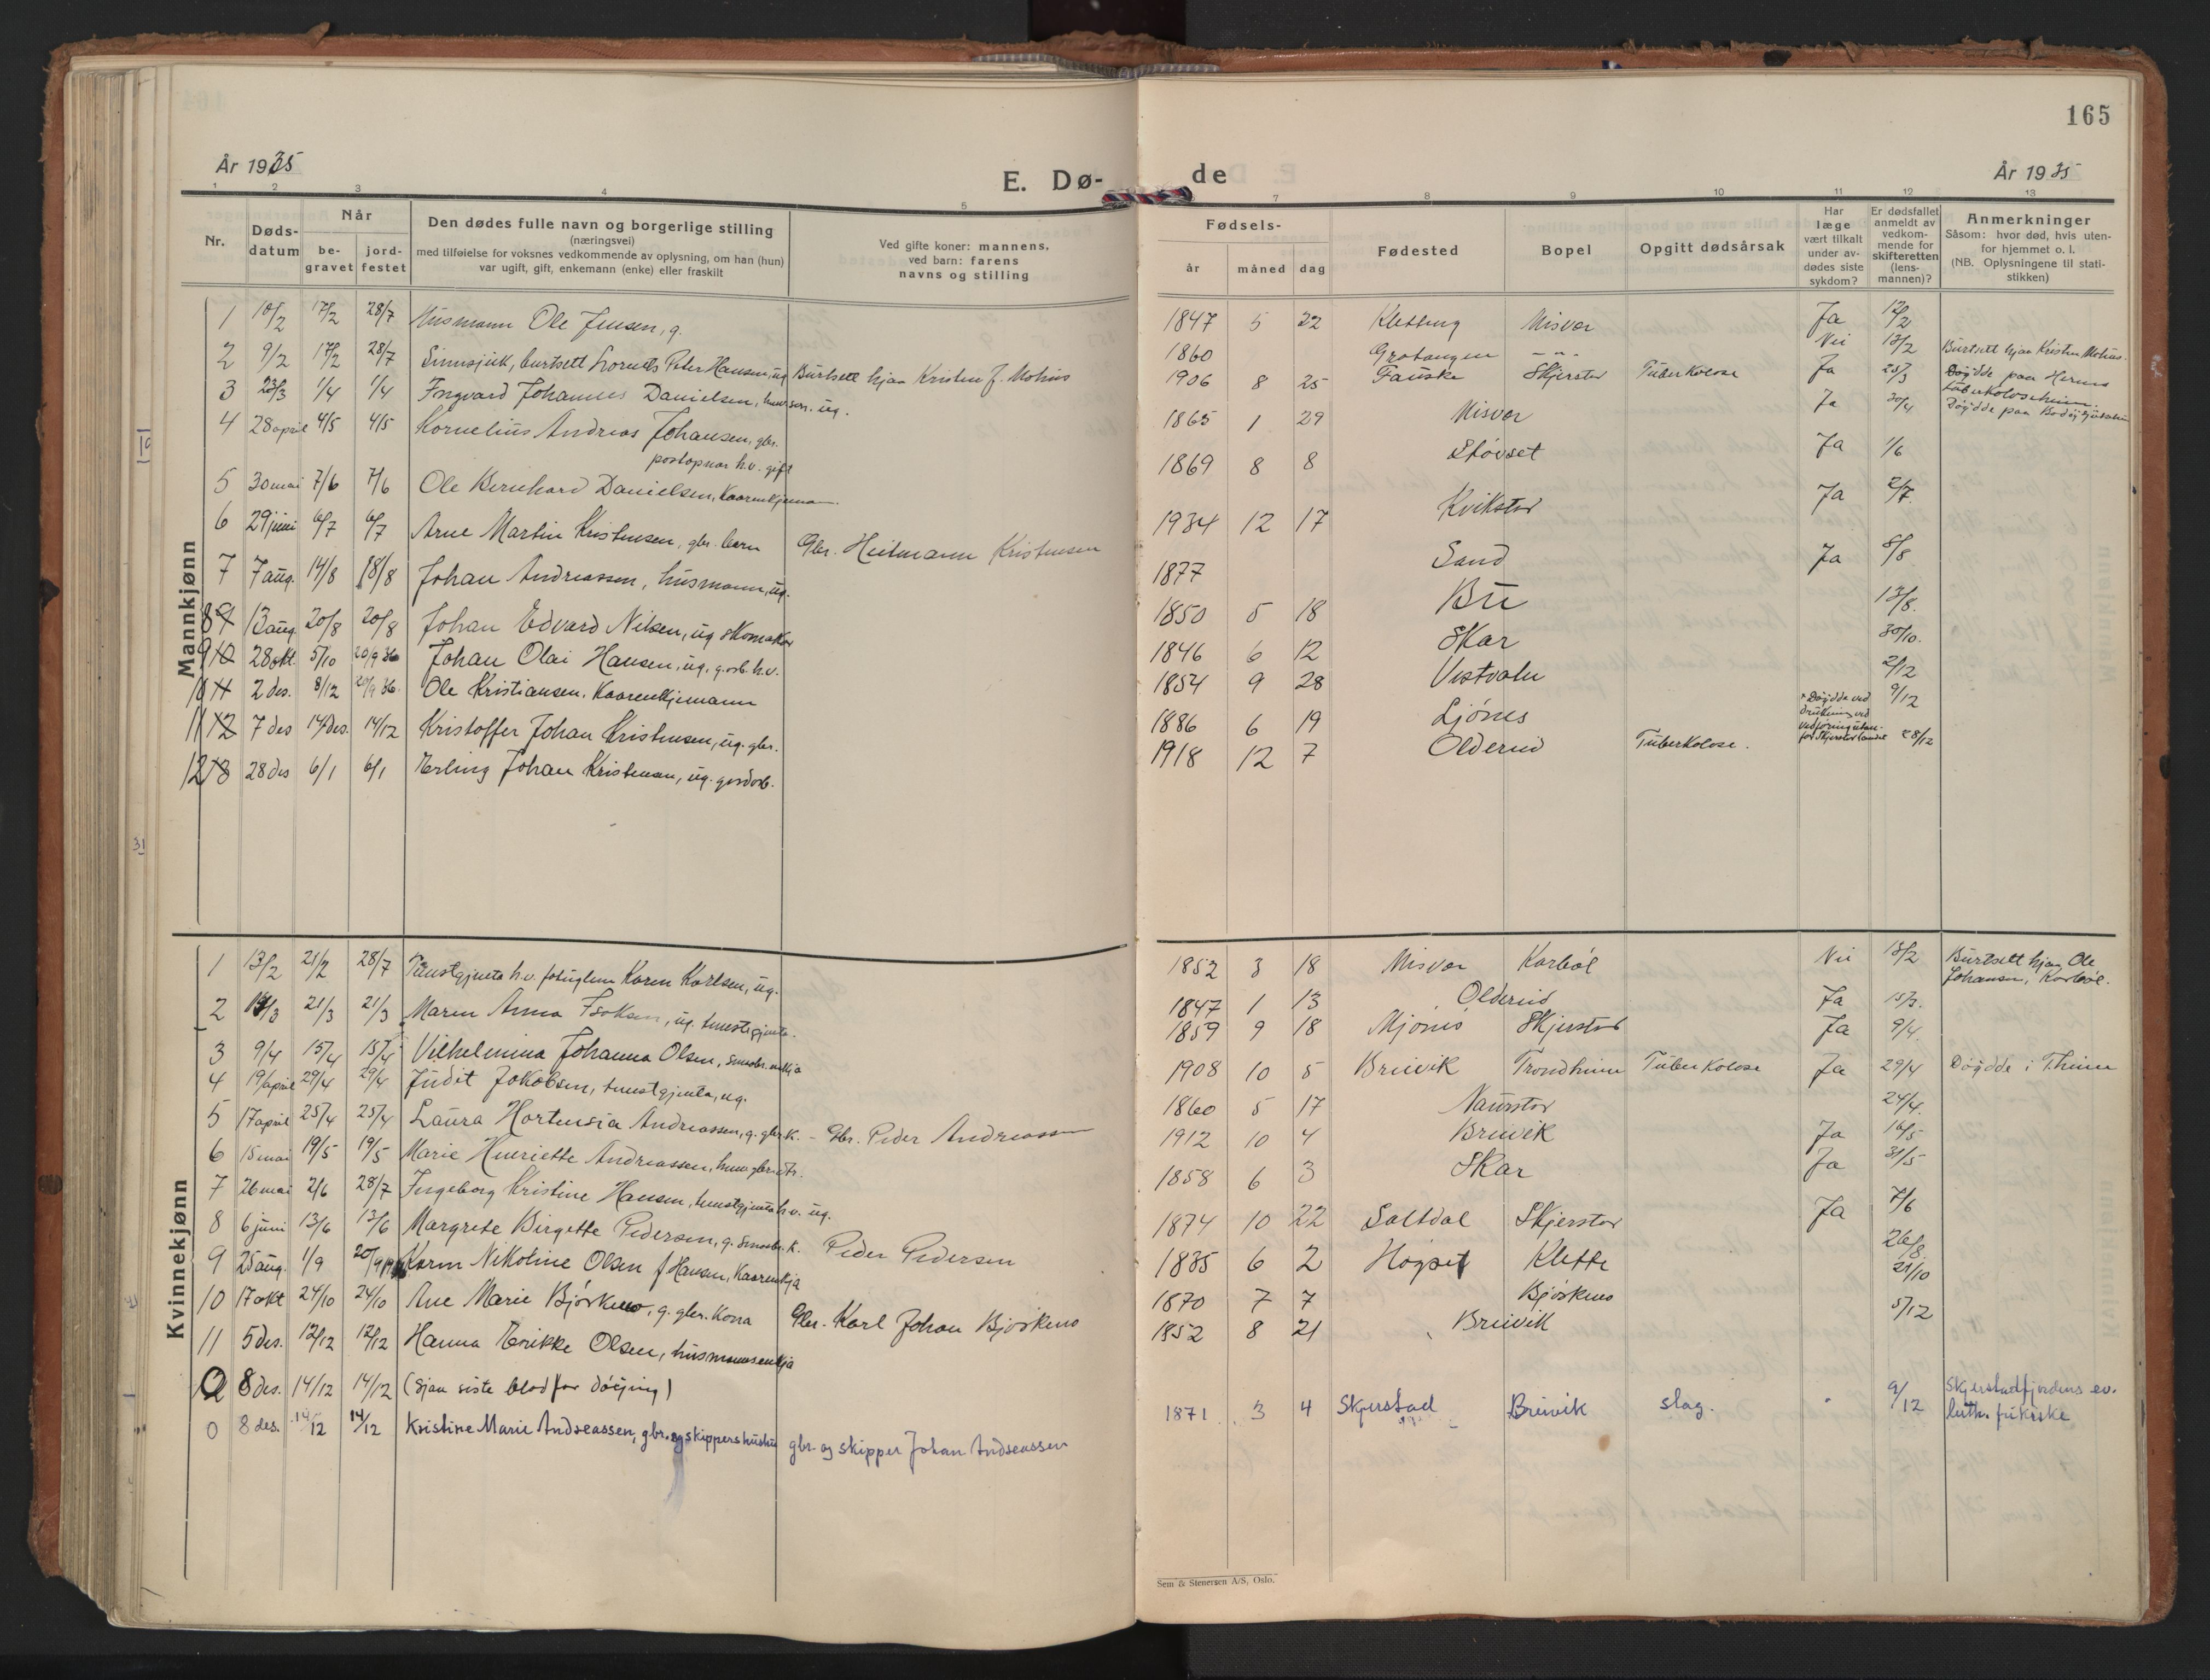 165
År 1935
E. Dø-
de
År 1935
1 2 3 4 5 7 8 9 10 11 12 13
Nr.
Døds-
datum
Når
be-
gravet
jord-
festet
Den dødes fulle navn og borgerlige stilling
(næringsvei)
med tilføielse for voksnes vedkommende av oplysning, om han (hun)
var ugift, gift, enkemann (enke) eller fraskilt
Ved gifte koner: mannens,
ved barn: farens
navns og stilling
Fødsels-
år måned dag
Fødested
Bopel
Opgitt dødsårsak
Har
læge
vært tilkalt
under av-
dødes siste
sykdom?
Er dødsfallet
anmeldt av
vedkom-
mende for
skifteretten
(lens-
mannen)?
Anmerkninger
Såsom: hvor død, hvis uten-
for hjemmet o. l.
(NB. Oplysningene til stati-
stikken)
Mannkjønn
1 10/2 17/2 28/7 Husmann Ole Jensen, g. 1847 5 22 Kletting Misvær Ja 12/2
2 9/2 17/2 28/7 Sinnsjuk, burtsett Peter Hansen, ug Burtsett hjaa Kristen J. Mohus 1860 Gratangen -"- Nei 13/2 Burtsett hjaa Kristen Mohus.
3 23/3 1/4 1/4 Ingvard Johannes Danielsen, ug. 1906 8 25 Fauske Skjerstad Tuberkolose Ja 25/3 Døydde paa
4 28 april 4/5 4/5 Kornelius Andreas Johansen, gbr. 1865 1 29 Misvær Ja 30/4 Døydde paa Bodø
postopnar h.v. gift
5 30 mai 7/6 7/6 Ole Bernhard Danielsen, Kaarenkjemann 1869 8 8 Støvset Ja 1/6
6 29 juni 6/7 6/7 Arne Martin Kristensen, gbr. barn Gbr. Heitmann Kristensen 1934 12 17 Kvikstad Ja 2/7
7 7 aug. 14/8 18/8 Johan Andreassen, husmann, ug. 1877 Sand Ja 8/8
8 13 aug. 20/8 20/8 Johan Edvard Nilsen, ug skomakar 1850 5 18 Bu 13/8.
9 28 okt. 5/10 20/9 36 Johan Olai Hansen, ug. h.v. 1846 6 12 Skar 30/10.
10 2 des. 8/12 20/9 36. Ole Kristiansen, Kaarenkjemann 1854 9 28 Vestvatn 2/12
11 7 des 14 des. 14/12 Kristoffer Johan Kristensen, ug. gbr. 1886 6 19 Ljønes Døydde ved drukning ved 9/12
12 28 des 6/1 6/1 Erling Johan Kristensen, ug. gardarb. 1918 12 7 Oldereid Tuberkolose. 28/12
Kvinnekjønn
1 13/2 21/2 28/7 Tenestgjenta h.v. Karen Karlsen, ug. 1852 3 18 Misvær Karbøl Nei 13/2 Burtsett hjaa Ole
Johansen, Karbøl.
2 21/3 21/3 Maren Anna Isaksen, ug. tenestgjenta. 1847 1 13 Oldereid Ja 15/3.
3 9/4 15/4 15/4 Vilhelmina Johanna Olsen, 1859 9 18 Mjønes Skjerstad Ja 9/4.
4 19/april 29/4 29/4 Judit Jakobsen, tenestgjenta, ug. 1908 10 5 Breivik Trondheim Tuberkolose Ja 29/4 Døydde i Theim
5 17 april 25/4 25/4 Laura Hortensia Andreassen, g. gbr. k. - Gbr. Peder Andreassen 1860 5 17 Naurstad 24/4.
6 15 mai 19/5 19/5 Marie Henriette Andreassen, 1912 10 4 Breivik Ja 16/5
7 26 mai 2/6 28/7 Ingeborg Kristine Hansen, tenestgjenta h.v. ug. 1858 6 3 Skar Ja 31/5
8 6 juni 13/6 13/6 Margrete Birgette Pedersen, g. smaabr. k. Peder Pedersen 1874 10 22 Saltdal Skjerstad Ja 7/6
9 25 aug. 1/9 20/9 Karen Nikoline Olsen f Hansen, Kaarenkja 1835 6 2 Høgset Klette 26/8.
10 17 okt 24/10 24/10 Ane Marie Bjørkmo, g. gbr. kona Gbr. Karl Johan Bjørkmo 1870 7 7 Bjørkmo 21/10
11 5 des. 12/12 12/12 Hanna Erikke Olsen, husmannsenkja 1852 8 21 Breivik 5/12
0 8 des. 14/12 14/12 (Sjaa siste blad for døying)
0 8 des. 14/12 14/12 Kristine Marie Andreassen, gbr. og skippers hustru gbr. og skipper Johan Andreassen 1871 3 4 Skjerstad Breivik slag. 9/12 Skjerstadfjordens ev.
luth. frikirke
Sem & Stenersen A/S, Oslo.